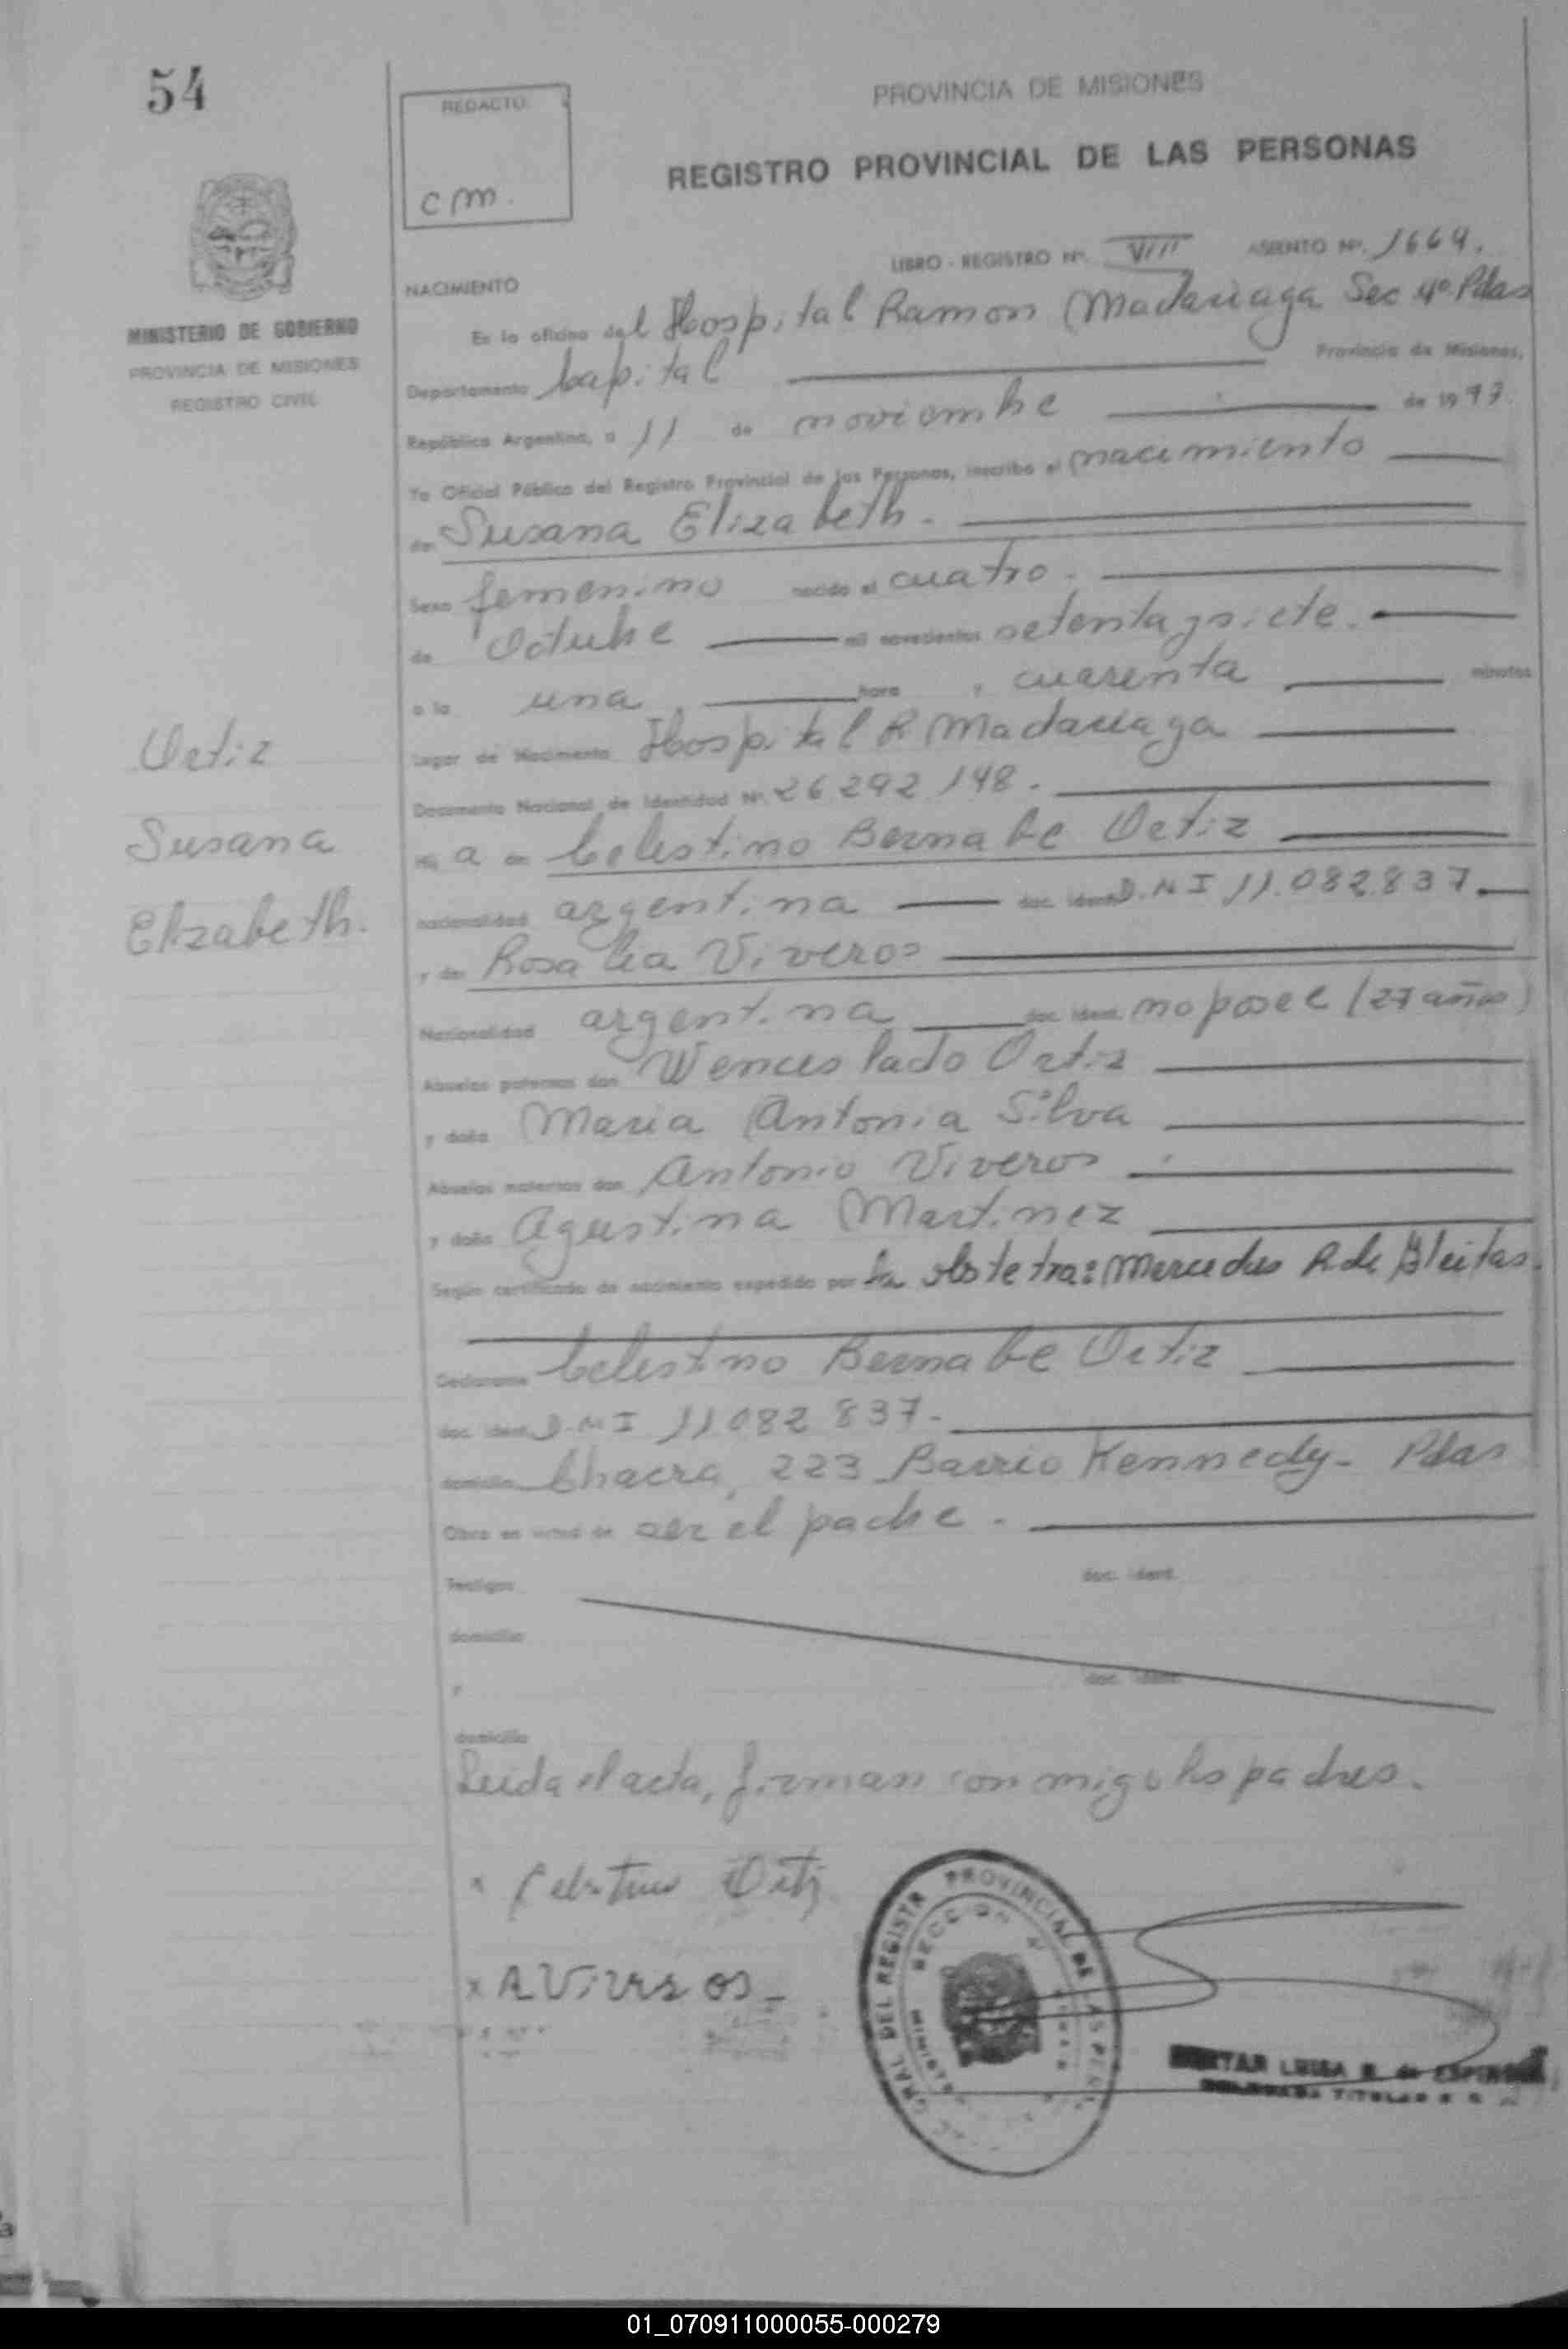 54
REDACTO:
cm.
PROVINCIA DE MISIONES
REGISTRO PROVINCIAL DE LAS PERSONAS
LIBRO - REGISTRO Nº. VIII ASIENTO Nº. 1664.
MINISTERIO DE GOBIERNO
PROVINCIA DE MISIONES
REGISTRO CIVIL
NACIMIENTO
En la oficina del Hospital Ramon Madariaga Sec 4º. Pdas
Departamento Capital Provincia de Misiones,
República Argentina, a 11 de noviembre de 1977.
Yo Oficial Público del Registro Provincial de las Personas, inscribo el nacimiento
de Susana Elizabeth.
Sexo femenino nacido el cuatro.
de Octubre mil novecientos setenta y siete.
a la una hora y cuarenta minutos
Lugar de Nacimiento Hospital R Madariaga
Documento Nacional de Identidad Nº. 26.292.148.
Ortiz
Susana
Elizabeth.
Hij a de Celestino Bernabe Ortiz
nacionalidad argentina doc. ident. D.N.I 11.082.837
y de Rosalia Viveros
Nacionalidad argentina doc. ident. no posee (27 años)
Abuelos paternos don Wenceslado Ortiz
y doña Maria Antonia Silva
Abuelos maternos don Antonio Viveros
y doña Agustina Martinez
Según certificado de nacimiento expedido por la obstetra: Mercedes R de Gleitas.
Declarante Celestino Bernabe Ortiz
doc. ident. D.N.I 11082 837.
domicilio Chacra 223 Barrio Kennedy - Pdas
Obra en virtud de ser el padre.
Testigos doc. ident.
domicilio
y doc. ident.
domicilio
Leida el acta, firman conmigo los padres.
x Celestino Ortiz
x R Viveros
GRAL DEL REGISTR PROVINCIAL DE LAS PERS
SECCION 4
LUISA R. de ESPINOSA
TITULAR
01_070911000055-000279